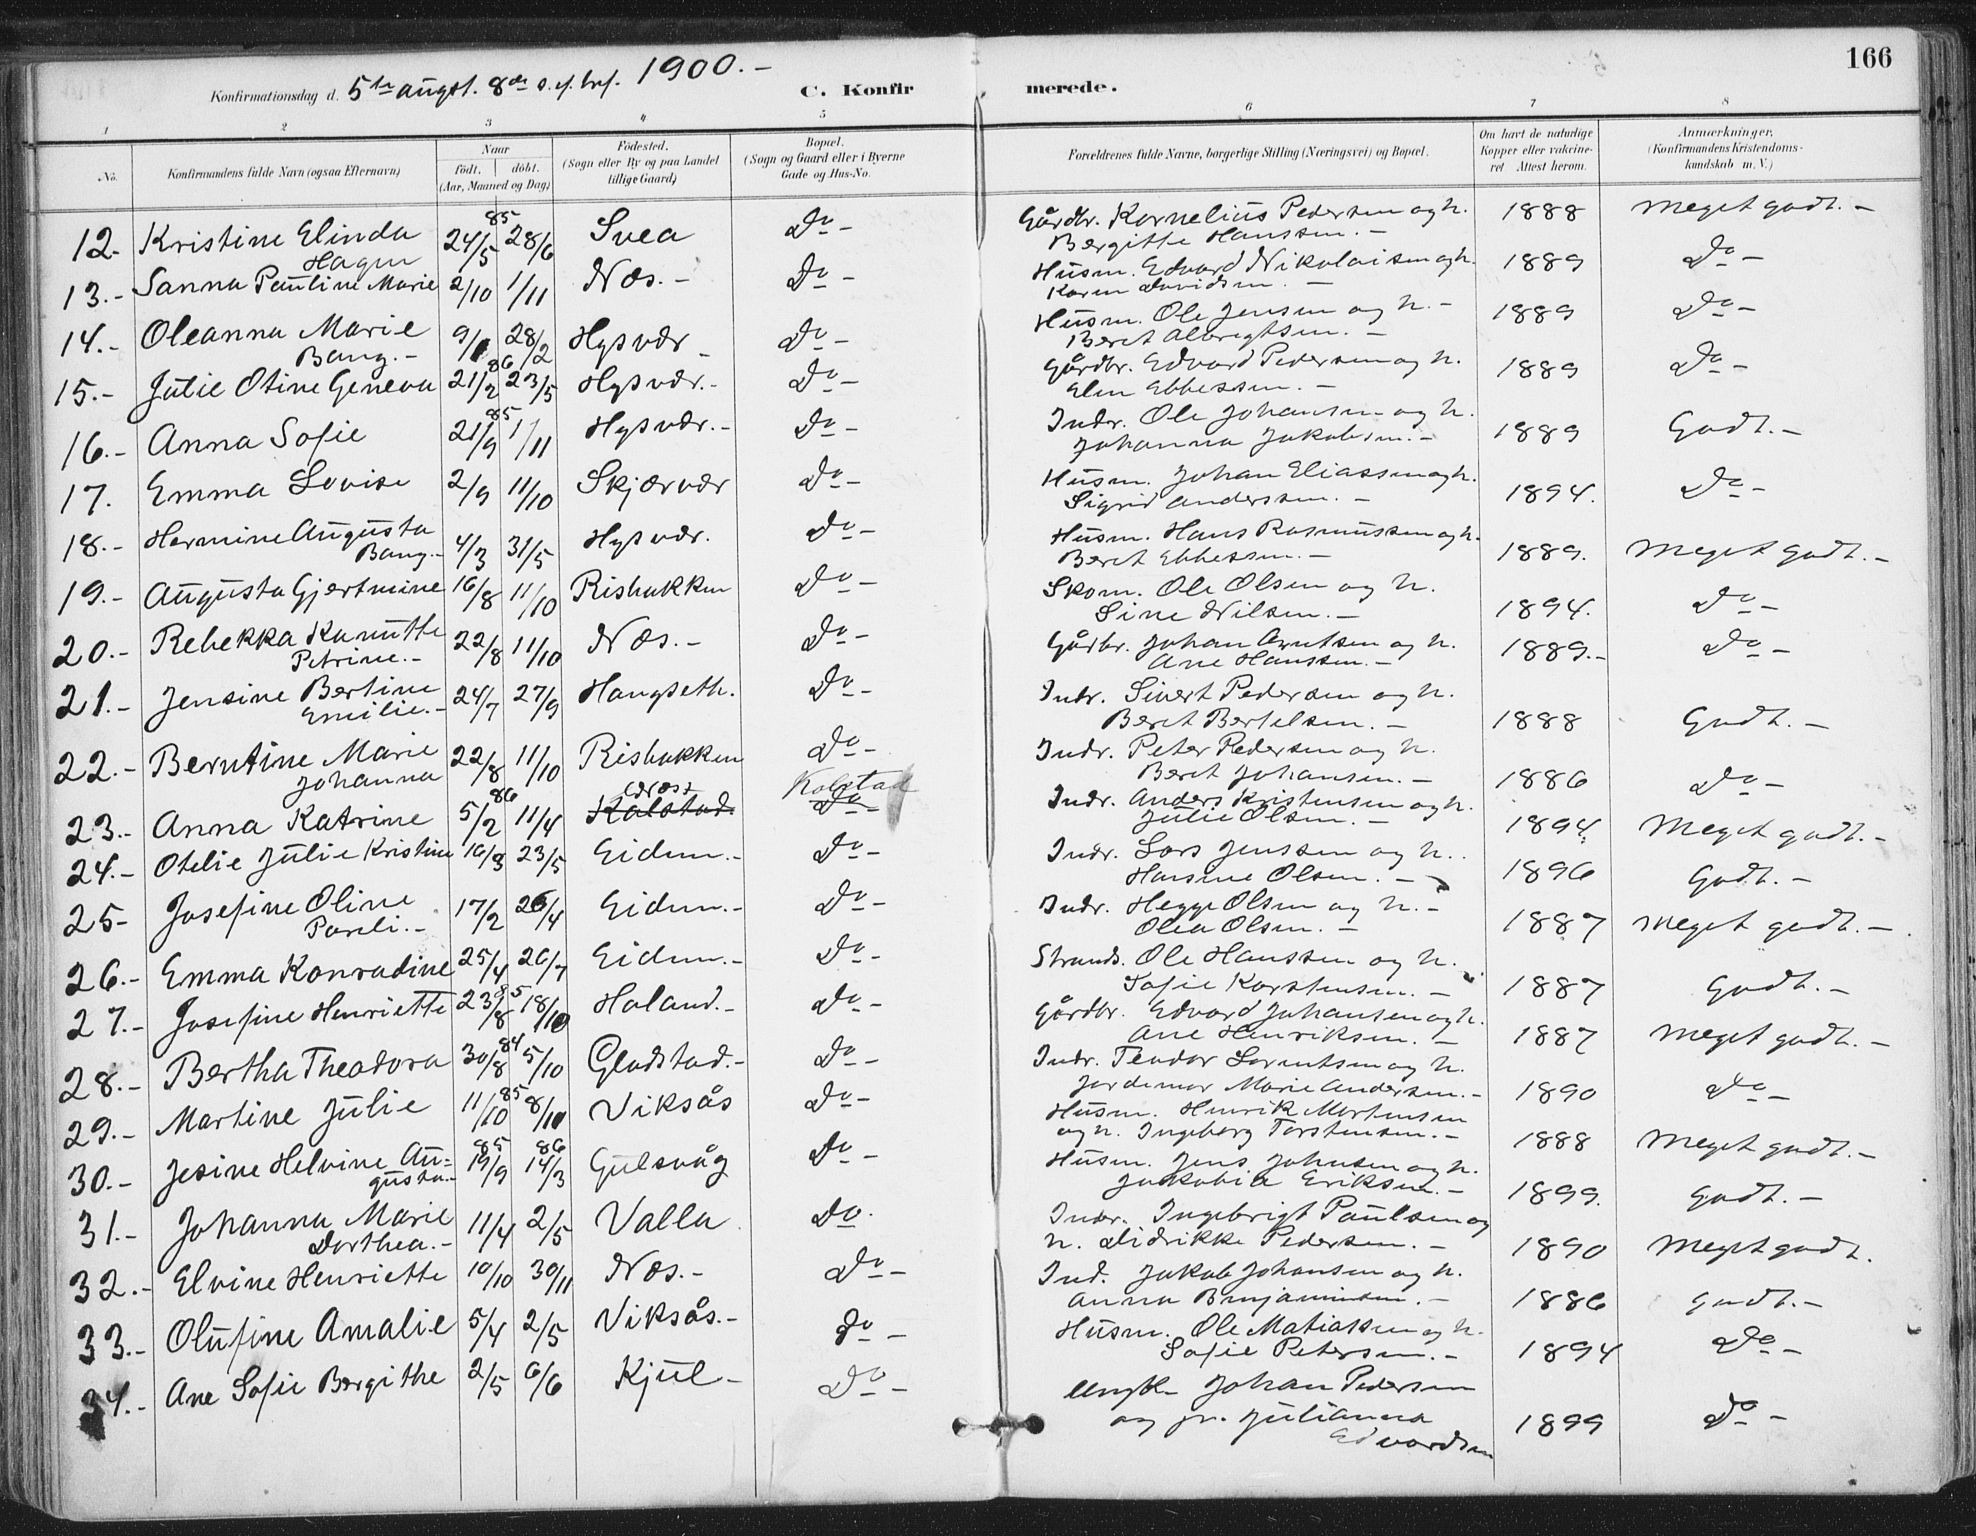 166
Konfirmationsdag d. 5te augst. 8de s. ef. 1900.-
C. Konfirmerede.
1 2 3 4 5 6 7 8
No. Konfirmandens fulde Navn (ogsaa Efternavn) Naar födt. döbt. (Aar, Maaned og Dag) Födested. (Sogn eller By og paa Landet tillige Gaard) Bopæl. (Sogn og Gaard eller i Byerne Gade og Hus-No. Forældrenes fulde Navne, borgerlige Stilling (Næringsvei) og Bopæl. Om havt de naturlige Kopper eller vakcineret Attest herom. Anmærkninger. (Konfirmandens Kristendomskundskab m. V.)
12.- Kristine Elinda Hagen 24/5 85 28/6 Svea Do- Gårdbr. Kornelius Pedersen og h. Bergitte Hanssen.- 1888 Meget godt.-
13.- Sanna Pauline Marie 2/10 1/11 Næs.- Do- Husm. Edvard Nikolaisen og h. Karen Davidsen.- 1889 Do-
14.- Oleanna Marie Bang.- 9/1 28/2 Hysvær- Do- Husm. Ole Jensen og h.- Beret Albregtsen.- 1889 Do-
15.- Julie Otine Geneva 21/2 86 23/5 Hysvær.- Do- Gårdbr. Edvard Pedersen og h. Elen Ebbessen.- 1889 Do-
16.- Anna Sofie 21/9 85 1/11 Hysvær.- Do- Indr. Ole Johansen og h. Johanna Jakobsen.- 1889 Godt.-
17. Emma Lovise 2/9 11/10 Skjærvær Do- Husm. Johan Eliassen og h. Sigrid Anderssen.- 1894. Do-
18.- Hermine Augusta Bang.- 4/3 31/5 Hysvær. Do- Husm. Hans Rasmussen og h. Beret Ebbessen.- 1889. Meget godt.-
19.- Augusta Gjertmine 16/8 11/10 Risbakken Do- Skom. Ole Olsen og h. Sine Nilsen.- 1894. Do-
20.- Rebekka Petrine.- 22/8 11/10 Næs.- Do- Gårbr. Johan Arntsen og h. Ane Hanssen.- 1889.- Do-
21.- Jensine Bertine Emilie.- 24/7 27/9 Hangseth. Do- Indr. Sivert Pedersen og h. Beret Bertelsen.- 1888 Godt.-
22.- Berntine Marie Johanna 22/8 11/10 Risbakken Do- Indr. Peter Pedersen og h. Beret Johansen.- 1886 Do-
23.- Anna Katrine 5/2 86 11/4 Kalstad. Kolstad Do- Indr. Anders Kristensen og h. Julie Olsen.- 1894. Meget godt.-
24.- Otelie Julie Kristine 16/3 23/5 Eidem.- Do- Indr. Lars Jenssen og h. Hansine Olsen.- 1896 Godt.-
25- Josefine Oline Pareli.- 17/2 26/4 Eidem.- Do- Indr. Hegge Olsen og h.- Olea Olsen.- 1887 Meget godt.-
26.- Emma Konradine 25/4 26/7 Eidem.- Do- Strands. Ole Hanssen og h. Sofie Karstensen.- 1887 Godt.-
27.- Josefine Henriette 23/8 85 18/10 Holand.- Do- Gårdbr. Edvard Johansen og h. Ane Henriksen.- 1887 Meget godt.-
28.- Bertha Theodora 30/8 84 5/10 Gladstad.- Do- Indr. Teodor Lorentsen og h. Jordemor Marie Andersen.- 1890 Do-
29.- Martine Julie 11/10 85 8/11 Viksås Do- Husm. Henrik Mortensen og h. Ingeborg Torstensen.- 1888 Meget godt.-
30.- Jesine Helvine Augusta.- 19/9 85 14/3 86 Gulsvåg Do- Husm. Jens Johnsen og h. Jakobia Eriksen.- 1899. Godt.-
31.- Johanna Marie Dorthea.- 11/4 2/5 Valla Do. Indr. Ingebrigt Paulsen og h. Didrikke Pedersen.- 1890 Meget godt.
32.- Elvine Henriette 10/10 30/11 Næs.- Do- Ind. Jakob Johansen og h. Anna Benjaminsen.- 1886 Godt.-
33.- Olufine Amalie 5/4 2/5 Viksås.- Do- Husm. Ole Matiassen og h. Sofie Petersen.- 1894 Do-
34.- Ane Sofie Bergithe 2/5 6/6 Kjul- Do- Ungk. Johan Pedersen og pi. Julianna Edvardsen 1899 Do-